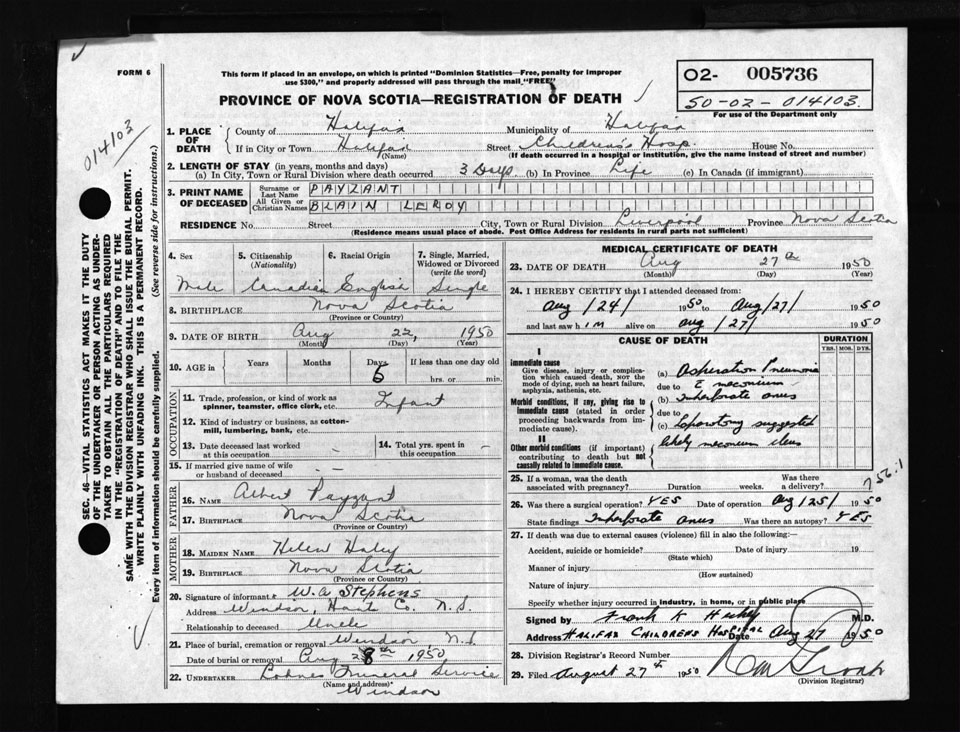 FORM 6
This form if placed in an envelope, on which is printed "Dominion Statistics—Free, penalty for improper
use $300," and properly addressed will pass through the mail "FREE"
PROVINCE OF NOVA SCOTIA—REGISTRATION OF DEATH
02- 005736
50-02-014103
For use of the Department only
014103
SEC. 46—VITAL STATISTICS ACT MAKES IT THE DUTY
OF THE UNDERTAKER OR PERSON ACTING AS UNDER-
TAKER TO OBTAIN ALL THE PARTICULARS REQUIRED
IN THE "REGISTRATION OF DEATH" AND TO FILE THE
SAME WITH THE DIVISION REGISTRAR WHO SHALL ISSUE THE BURIAL PERMIT.
WRITE PLAINLY WITH UNFADING INK. THIS IS A PERMANENT RECORD.
Every item of information should be carefully supplied. (See reverse side for instructions.)
1. PLACE OF DEATH County of Halifax Municipality of Halifax
If in City or Town Halifax Street Children's Hosp House No.
(Name) (If death occurred in a hospital or institution, give the name instead of street and number)
2. LENGTH OF STAY (in years, months and days)
(a) In City, Town or Rural Division where death occurred 3 Days (b) In Province Life (c) In Canada (if immigrant)
3. PRINT NAME OF DECEASED Surname or Last Name PAYZANT
All Given or Christian Names BLAIN LEROY
RESIDENCE No. Street City, Town or Rural Division Liverpool Province Nova Scotia
(Residence means usual place of abode. Post Office Address for residents in rural parts not sufficient)
4. Sex 5. Citizenship (Nationality) 6. Racial Origin 7. Single, Married, Widowed or Divorced (write the word)
Male Canadian English Single
8. BIRTHPLACE Nova Scotia
(Province or Country)
9. DATE OF BIRTH Aug 22, 1950
(Month) (Day) (Year)
10. AGE in Years Months Days If less than one day old
5 hrs. or min.
OCCUPATION
11. Trade, profession, or kind of work as spinner, teamster, office clerk, etc. Infant
12. Kind of industry or business, as cotton-mill, lumbering, bank, etc. -
13. Date deceased last worked at this occupation - 14. Total yrs. spent in this occupation -
15. If married give name of wife or husband of deceased - -
FATHER
16. NAME Albert Payzant
17. BIRTHPLACE Nova Scotia
(Province or Country)
MOTHER
18. MAIDEN NAME Helen Haley
19. BIRTHPLACE Nova Scotia
(Province or Country)
20. Signature of informant W. A Stephens
Address Windsor, Hants Co. N.S.
Relationship to deceased Uncle
21. Place of burial, cremation or removal Windsor N.S
Date of burial or removal Aug 28th 1950
22. UNDERTAKER Funeral Service
(Name and address)
Windsor
MEDICAL CERTIFICATE OF DEATH
23. DATE OF DEATH Aug 27th 1950
(Month) (Day) (Year)
24. I HEREBY CERTIFY that I attended deceased from:
Aug /24/ 1950 to Aug /27/ 1950
and last saw h IM alive on Aug /27/ 1950
CAUSE OF DEATH DURATION
YRS. MOS. DYS.
I
Immediate cause
Give disease, injury or complication which caused death, NOT the mode of dying, such as heart failure, asphyxia, asthenia, etc.
(a) Aspheration Pneumonia
due to c meconium
Morbid conditions, if any, giving rise to immediate cause (stated in order proceeding backwards from immediate cause).
(b) Imherforate anus
due to
(c) Laporotomy suggested
likely meconium ileus
II
Other morbid conditions (if important) contributing to death but not causally related to immediate cause.
25. If a woman, was the death associated with pregnancy? Duration weeks. Was there a delivery?
756.1
26. Was there a surgical operation? YES Date of operation Aug /25/ 1950
State findings Imherforate anus Was there an autopsy? YES
27. If death was due to external causes (violence) fill in also the following:
Accident, suicide or homicide? Date of injury 19
(State which)
Manner of injury
(How sustained)
Nature of injury
Specify whether injury occurred in industry, in home, or in public place
Signed by Frank K M.D.
Address HALIFAX CHILDRENS HOSPITAL Date Aug 27 1950
28. Division Registrar's Record Number
29. Filed August 27th 1950
(Division Registrar)